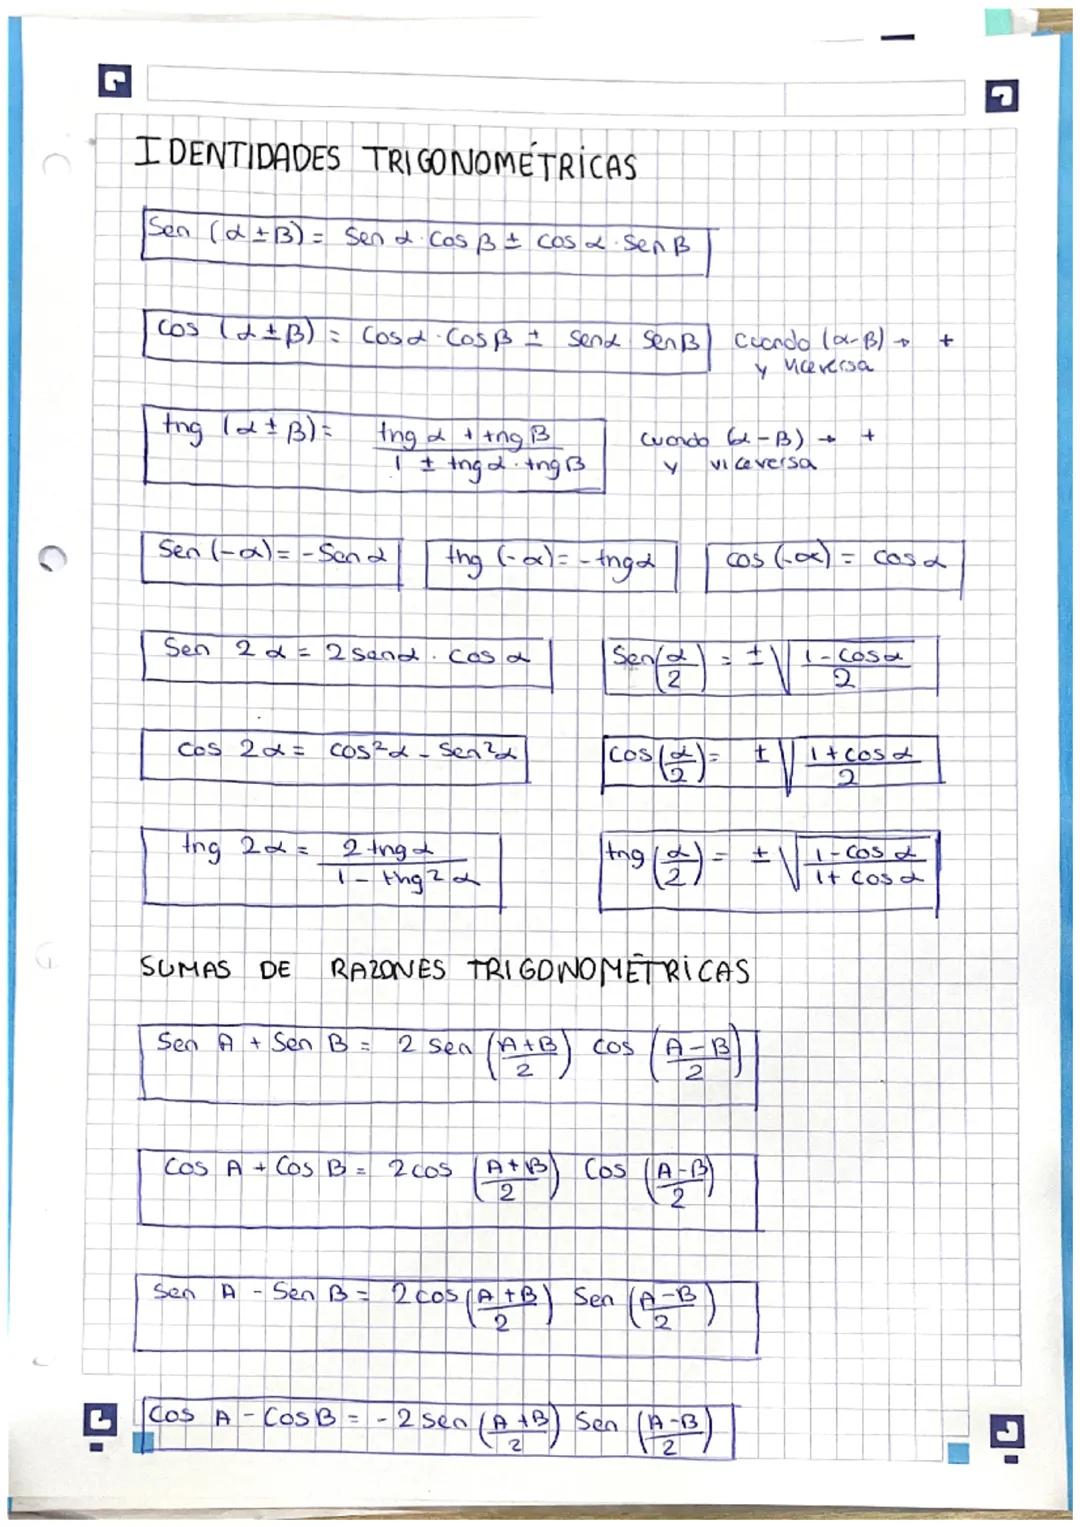 IDENTIDADES TRIGONOMÉTRICAS
Sen (α ± β) = Sen α · Cos β ± cos α · Sen β
cos (α ± β) = cos α · cos β ± sen α sen β cuando (α-β) → +
y viceversa
tng (α ± β) = tng α + tng β / 1 ± tng α · tng β cuando (α-β) → +
y viceversa
Sen (-α) = - Sen α tng (-α) = - tng α cos (-α) = cos α
Sen 2α = 2 sen α · cos α Sen (α/2) = ± √(1 - cos α / 2)
cos 2α = cos²α - sen²α cos (α/2) = ± √(1 + cos α / 2)
tng 2α = 2 tng α / 1 - tng²α tng (α/2) = ± √(1 - cos α / 1 + cos α)
SUMAS DE RAZONES TRIGONOMÉTRICAS
Sen A + Sen B = 2 sen (A+B/2) cos (A-B/2)
Cos A + Cos B = 2 cos (A+B/2) Cos (A-B/2)
Sen A - Sen B = 2 cos (A+B/2) Sen (A-B/2)
Cos A - Cos B = - 2 sen (A+B/2) Sen (A-B/2)